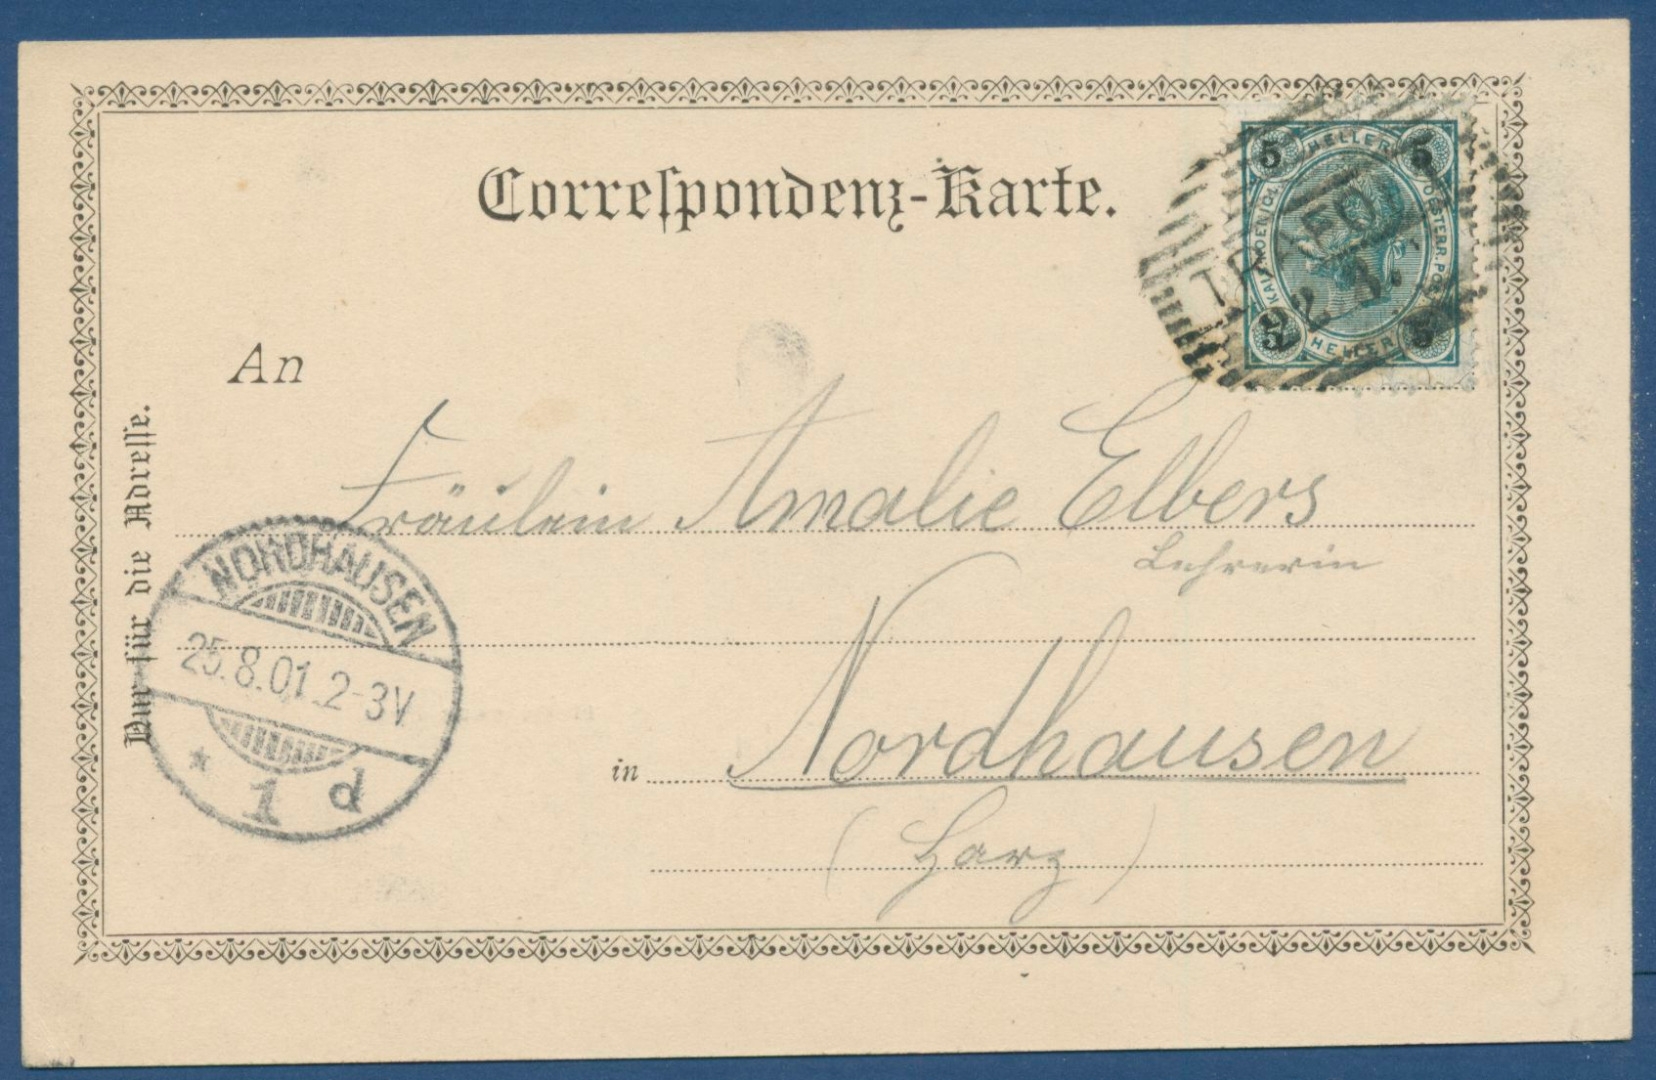 Correſpondenz-Karte.
5 HELLER 5
KAIS. KOENIGL. OESTERR. POST
5 HELLER 5
TRAFOI
An
Nur für die Adreſſe.
Fräulein Amalie Elbers
Lehrerin
NORDHAUSEN
25.8.01.2-3V
* 1 d
in Nordhausen
(Harz)